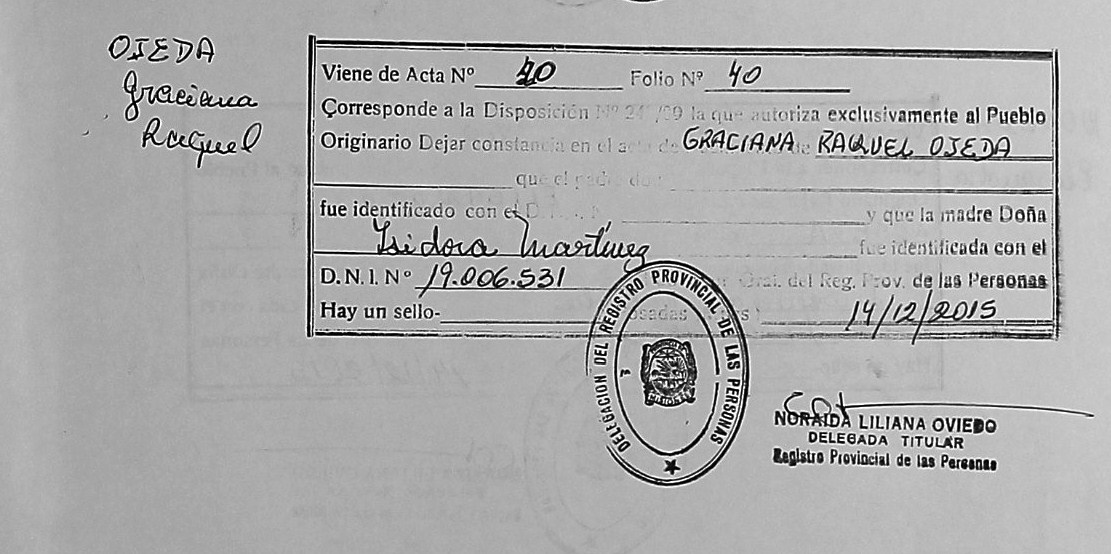 OJEDA
Graciana
Raquel
Viene de Acta Nº 40 Folio Nº 40
Corresponde a la Disposición Nº 24 /99 la que autoriza exclusivamente al Pueblo
Originario Dejar constancia en el acta de de GRACIANA RAQUEL OJEDA
que el padre don
fue identificado con el D.N.I. N y que la madre Doña
Isidora Martínez fue identificada con el
D.N.I. Nº 19.006.531 Gral. del Reg. Prov. de las Personas
Hay un sello- Posadas 14/12/2015
DELEGACION DEL REGISTRO PROVINCIAL DE LAS PERSONAS
MISIONES
NORAIDA LILIANA OVIEDO
DELEGADA TITULAR
Registro Provincial de las Personas